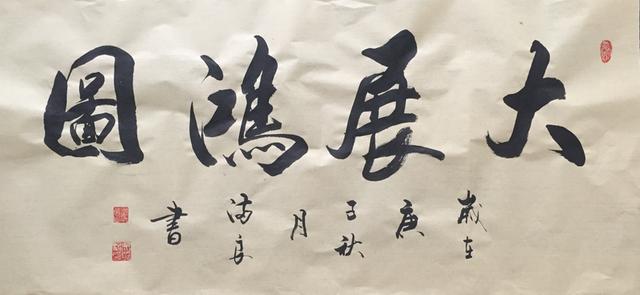 大展鴻圖
歲在庚子秋月满良書